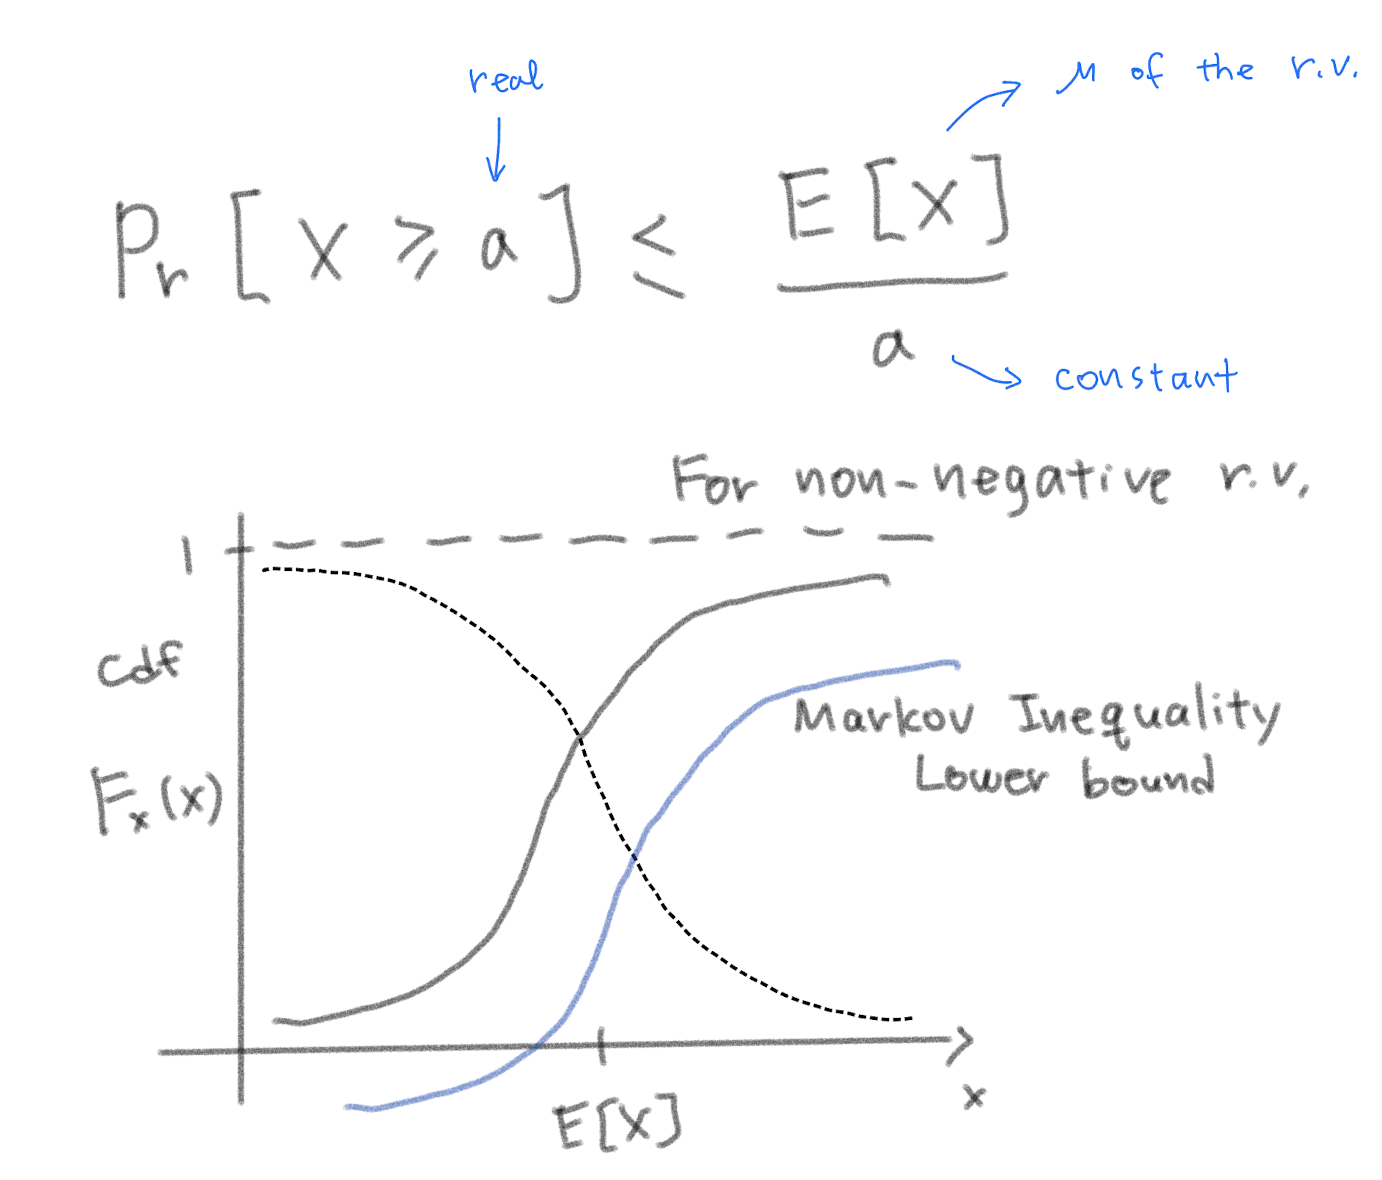 real
μ of the r.v.
Pr [ X ≥ a ] ≤ E[X]
a
constant
For non-negative r.v.
1
cdf
Markov Inequality
Lower bound
Fx(x)
x
E[X]